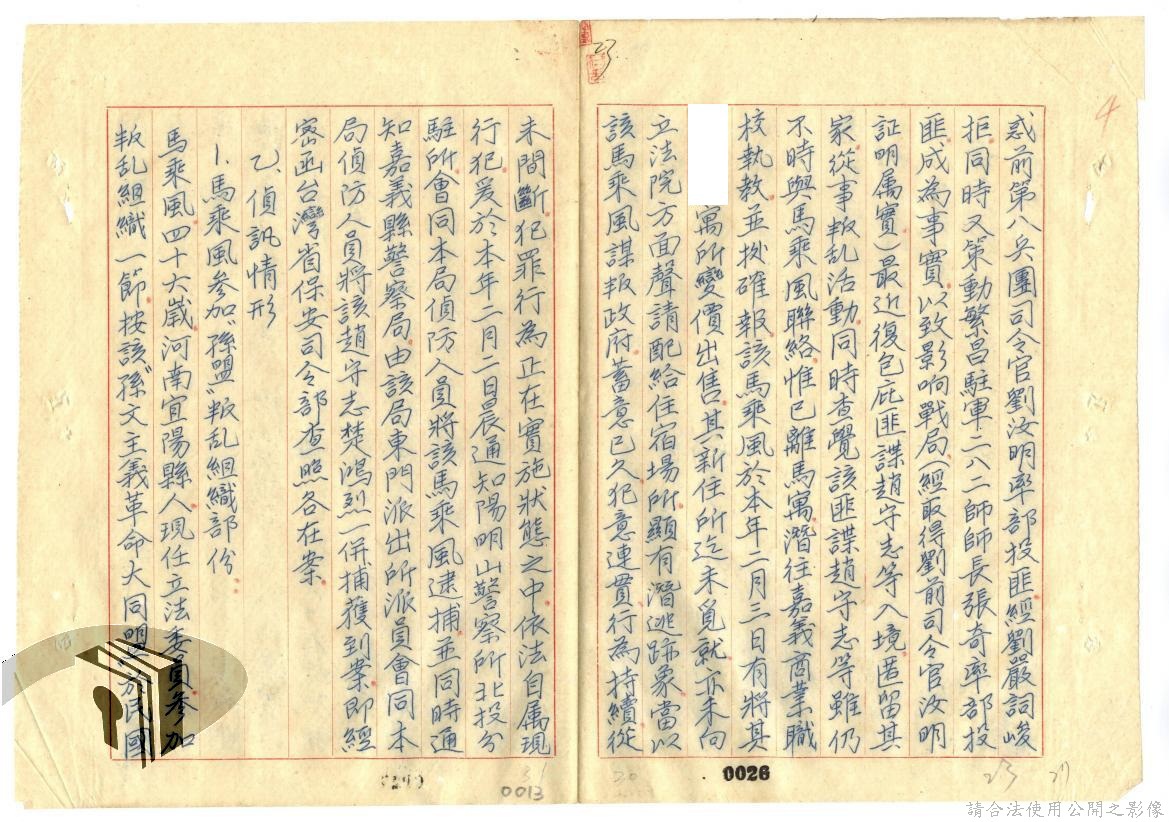 惑前第八兵團司令官劉汝明率部投匪經劉嚴詞峻
拒同時又策動繁昌駐軍二八二師師長張奇率部投
匪成為事實以致影响戰局（經取得劉前司令官汝明
証明属實）最近復包庇匪諜趙守志等入境匿留其
家從事叛乱活動同時查覺該匪諜趙守志等雖仍
不時與馬乘風聯絡惟已離馬寓潛往嘉義商業職
校執教並據確報該馬乘風於本年二月三日有將其
寓所變價出售其新住所迄未覓就亦未向
立法院方面聲請配給住宿場所顯有潛逃跡象當以
該馬乘風謀叛政府蓄意已久犯意連貫行為持續從
未間斷犯罪行為正在實施狀態之中依法自属現
行犯爰於本年二月二日晨通知陽明山警察所北投分
駐所會同本局偵防人員將該馬乘風逮捕並同時通
知嘉義縣警察局由該局東門派出所派員會同本
局偵防人員將該趙守志焚鴻烈一併捕獲到案即經
密函台灣省保安司令部查照各在案
乙、偵訊情形
1.馬乘風參加"孫盟"叛乱組織部份
馬乘風四十六歲河南宜陽縣人現任立法委員參加
叛乱組織一節按該"孫"文主義革命大同"盟"於民國
4
23
0026
23
27
20
31
0013
請合法使用公開之影像